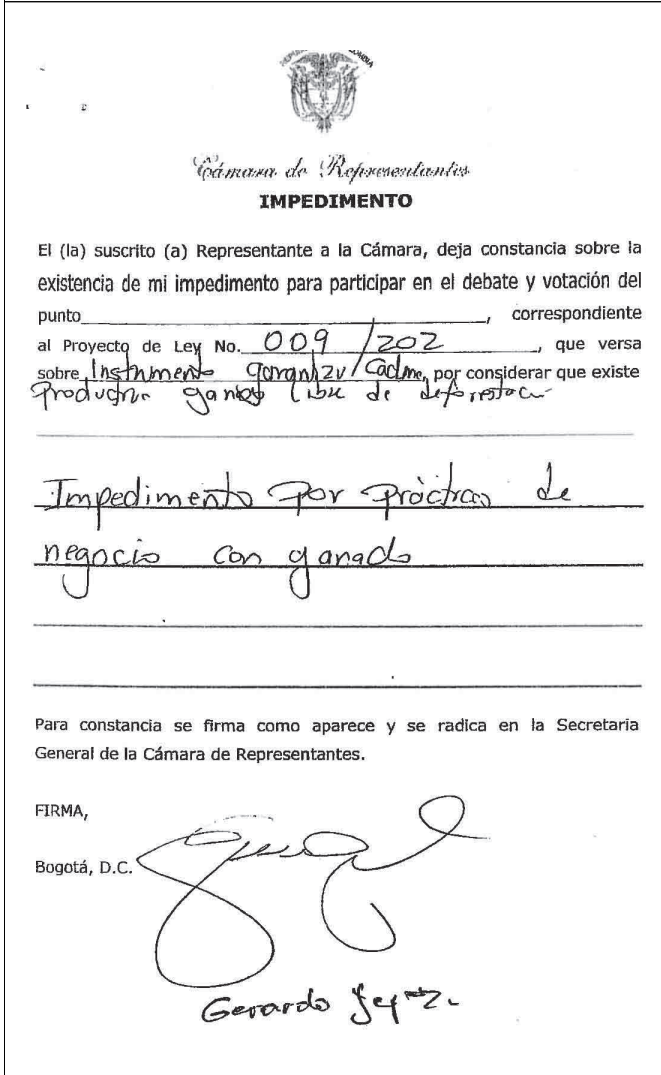 Cámara de Representantes
IMPEDIMENTO
El (la) suscrito (a) Representante a la Cámara, deja constancia sobre la
existencia de mi impedimento para participar en el debate y votación del
punto____________________, correspondiente
al Proyecto de Ley No. 009/202, que versa
sobre Instrumento, por considerar que existe
ganado libre de
Impedimento por práctica de
negocio con ganado
Para constancia se firma como aparece y se radica en la Secretaria
General de la Cámara de Representantes.
FIRMA,
Bogotá, D.C.
Gerardo